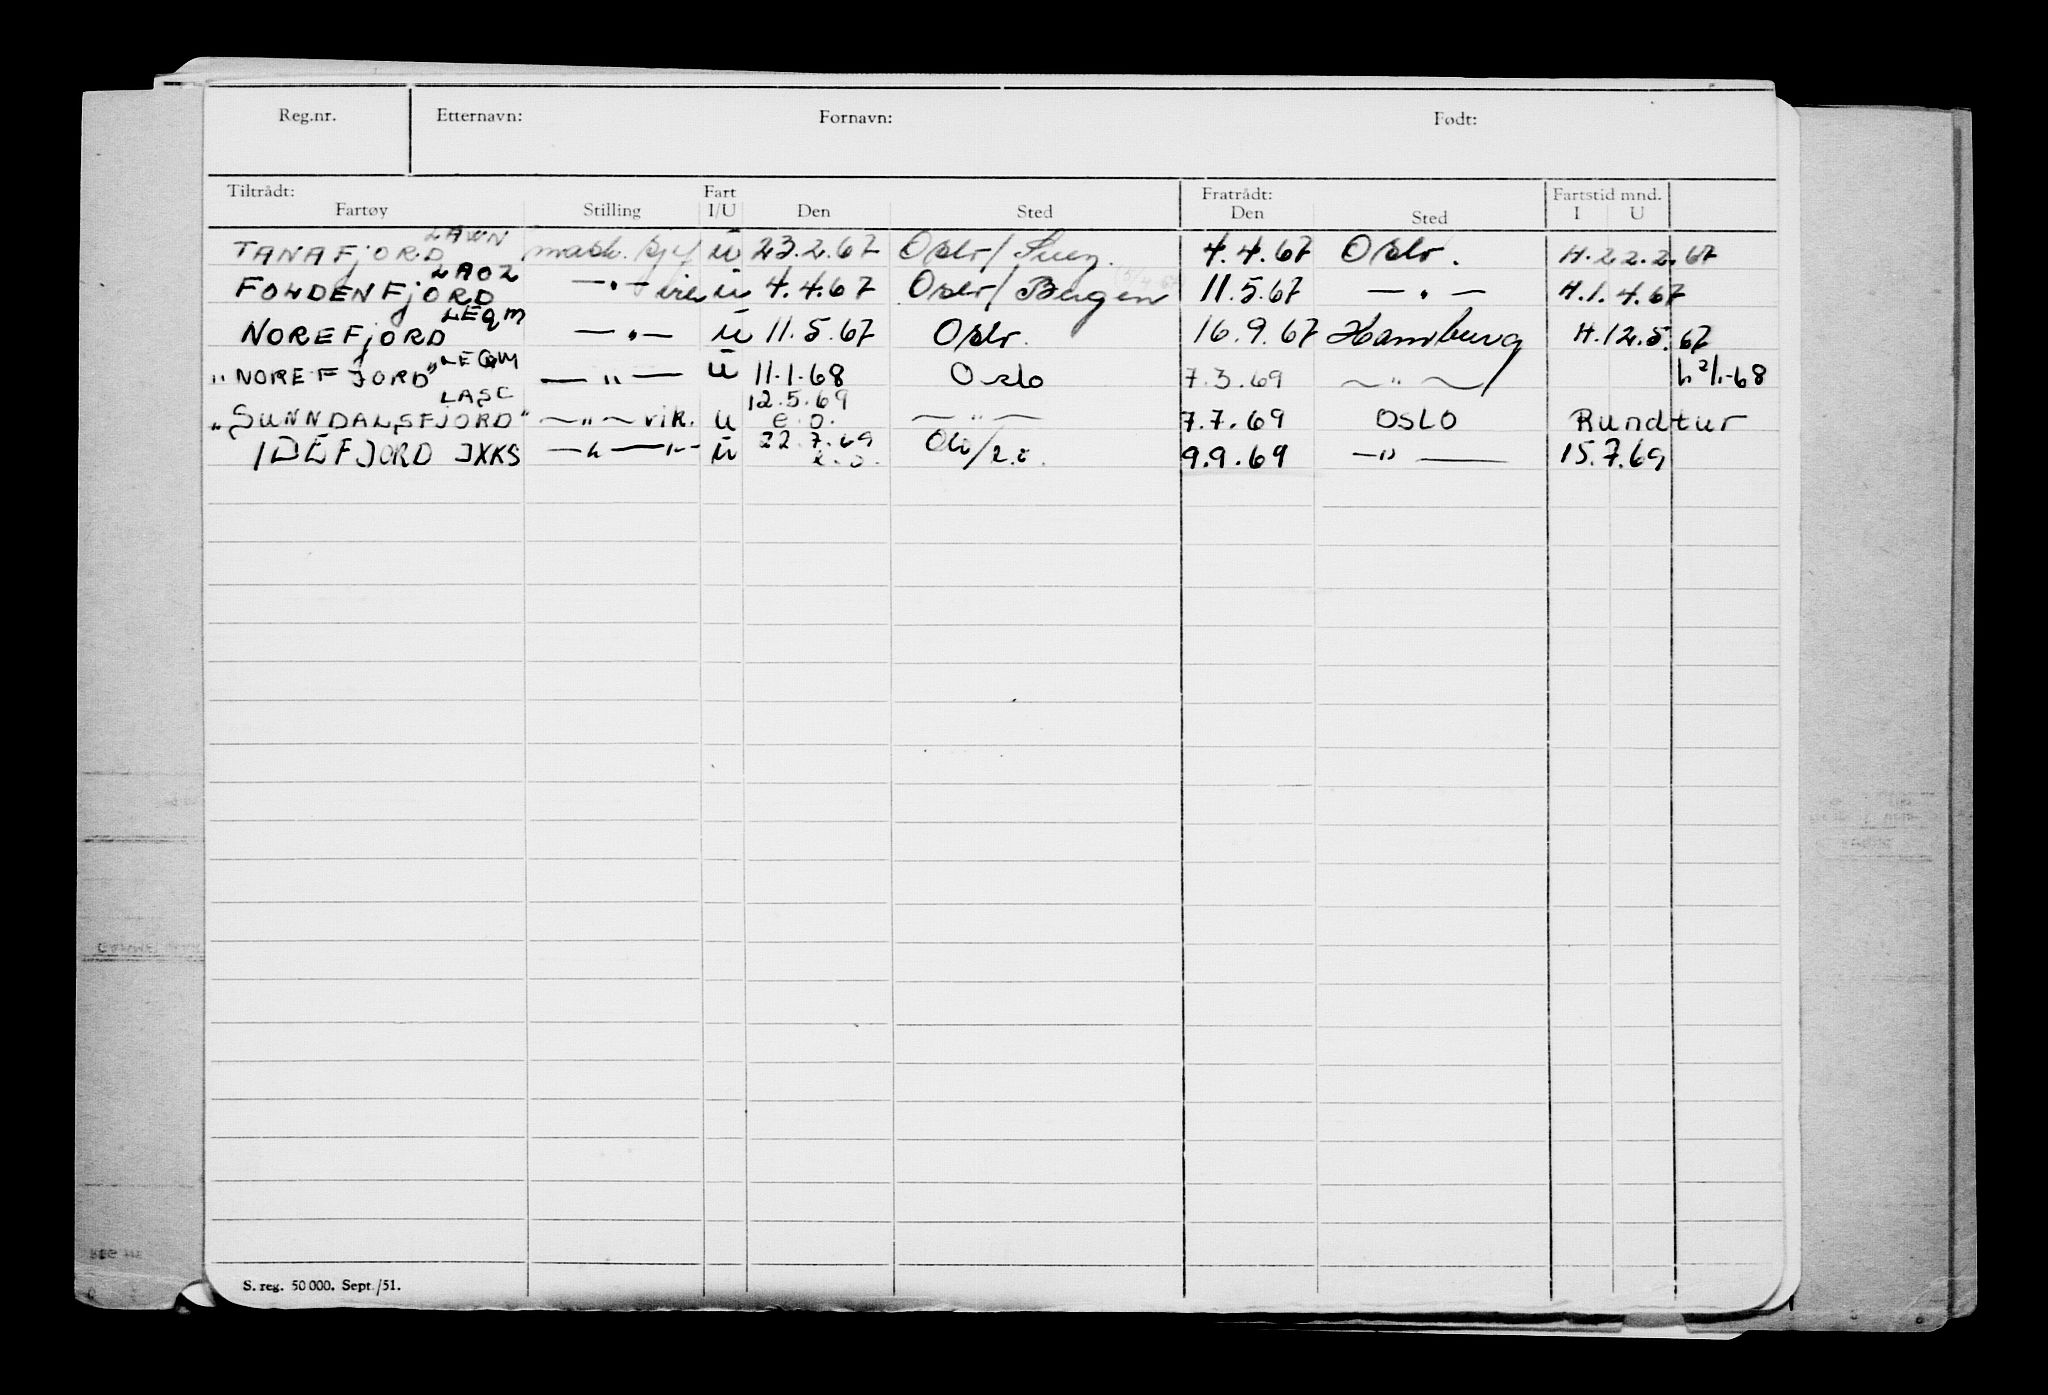 Reg.nr. Etternavn: Fornavn: Født:
Tiltrådt: Fart Fratrådt: Fartstid mnd.
Fartøy Stilling I/U Den Sted Den Sted I U
TANAFJORD LAWN mask. sjef u 23.2.67 Oslo/ 4.4.67 Oslo. H.22.2.67
FOLDENFJORD LAOZ —"— u 4.4.67 Oslo/ Bergen 11.5.67 — " — H.1.4.67
NOREFJORD LEQM —"— u 11.5.67 Oslo. 16.9.67 Hamburg H.12.5.67
"NOREFJORD" LEQM — " — u 11.1.68 Oslo 7.3.69 — " — h. 2/1-68
"SUNNDALSFJORD" LASC — " — vik. u 12.5.69 e.o. — " — 7.7.69 OSLO Rundtur
IDEFJORD JXKS — " — " — u 22.7.69 e.o. 9.9.69 — " — 15.7.69
S. reg. 50 000. Sept./51.